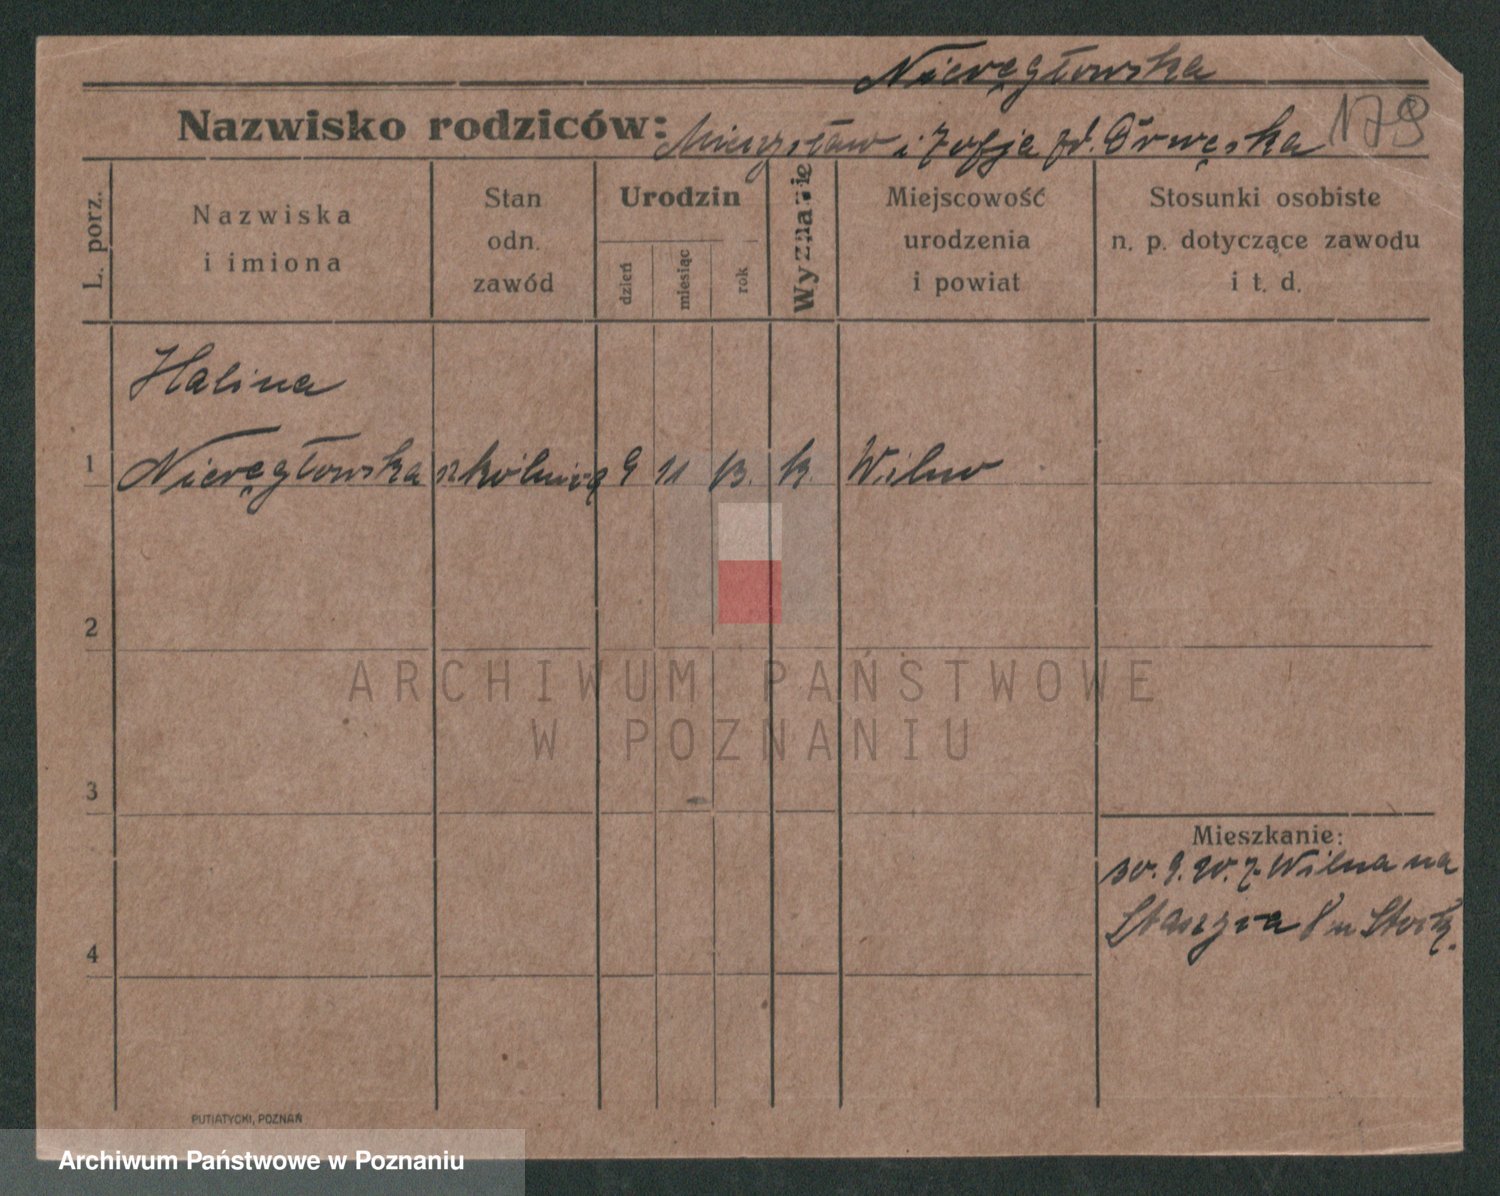 Nieręgłowska
Nazwisko rodziców: Mieczysław i Zofja zd. Drwęska 179
L. porz.
Nazwiska
i imiona
Stan
odn.
zawód
Urodzin
dzień
miesiąc
rok
Wyznanie
Miejscowość
urodzenia
i powiat
Stosunki osobiste
n. p. dotyczące zawodu
i t. d.
Halina
1 Nieręgłowska 9 11 13. k. Wilno
2
ARCHIWUM PAŃSTWOWE
W POZNANIU
3
Mieszkanie:
30. 9. 20. z. Wilna na
Staszyca 8 m
4
PUTIATYCKI, POZNAŃ
Archiwum Państwowe w Poznaniu